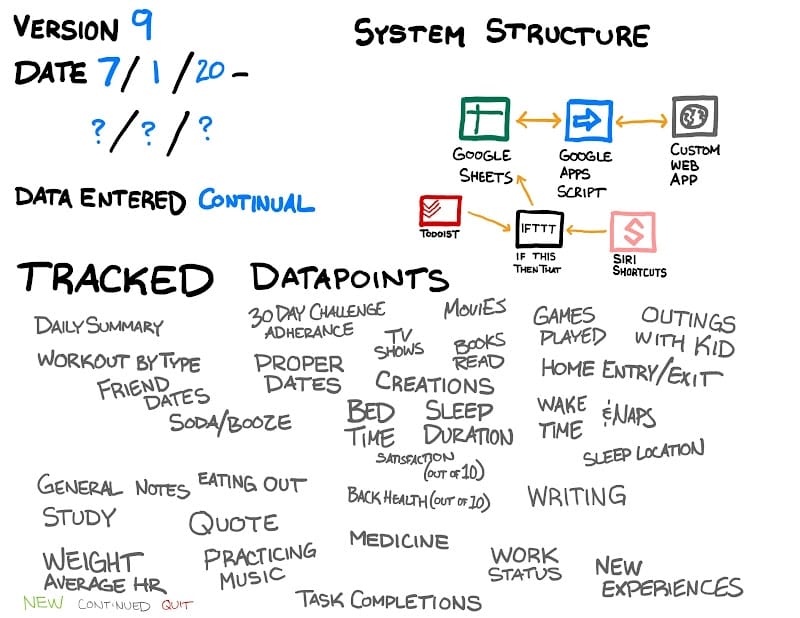 VERSION 9
DATE 7/1/20 -
?/?/?
DATA ENTERED CONTINUAL
SYSTEM STRUCTURE
GOOGLE
SHEETS
GOOGLE
APPS
SCRIPT
CUSTOM
WEB
APP
TODOIST
IFTTT
IF THIS
THEN THAT
SIRI
SHORTCUTS
TRACKED DATAPOINTS
DAILY SUMMARY
30 DAY CHALLENGE
ADHERANCE
MOVIES
GAMES
PLAYED
OUTINGS
WITH KID
WORKOUT BY TYPE
TV
SHOWS
BOOKS
READ
PROPER
DATES
HOME ENTRY/EXIT
FRIEND
DATES
CREATIONS
SODA/BOOZE
BED
TIME
SLEEP
DURATION
WAKE
TIME
& NAPS
SATISFACTION
(OUT OF 10)
SLEEP LOCATION
GENERAL NOTES
EATING OUT
BACK HEALTH (OUT OF 10)
WRITING
STUDY
QUOTE
MEDICINE
WEIGHT
AVERAGE HR
PRACTICING
MUSIC
WORK
STATUS
NEW
EXPERIENCES
NEW CONTINUED QUIT
TASK COMPLETIONS